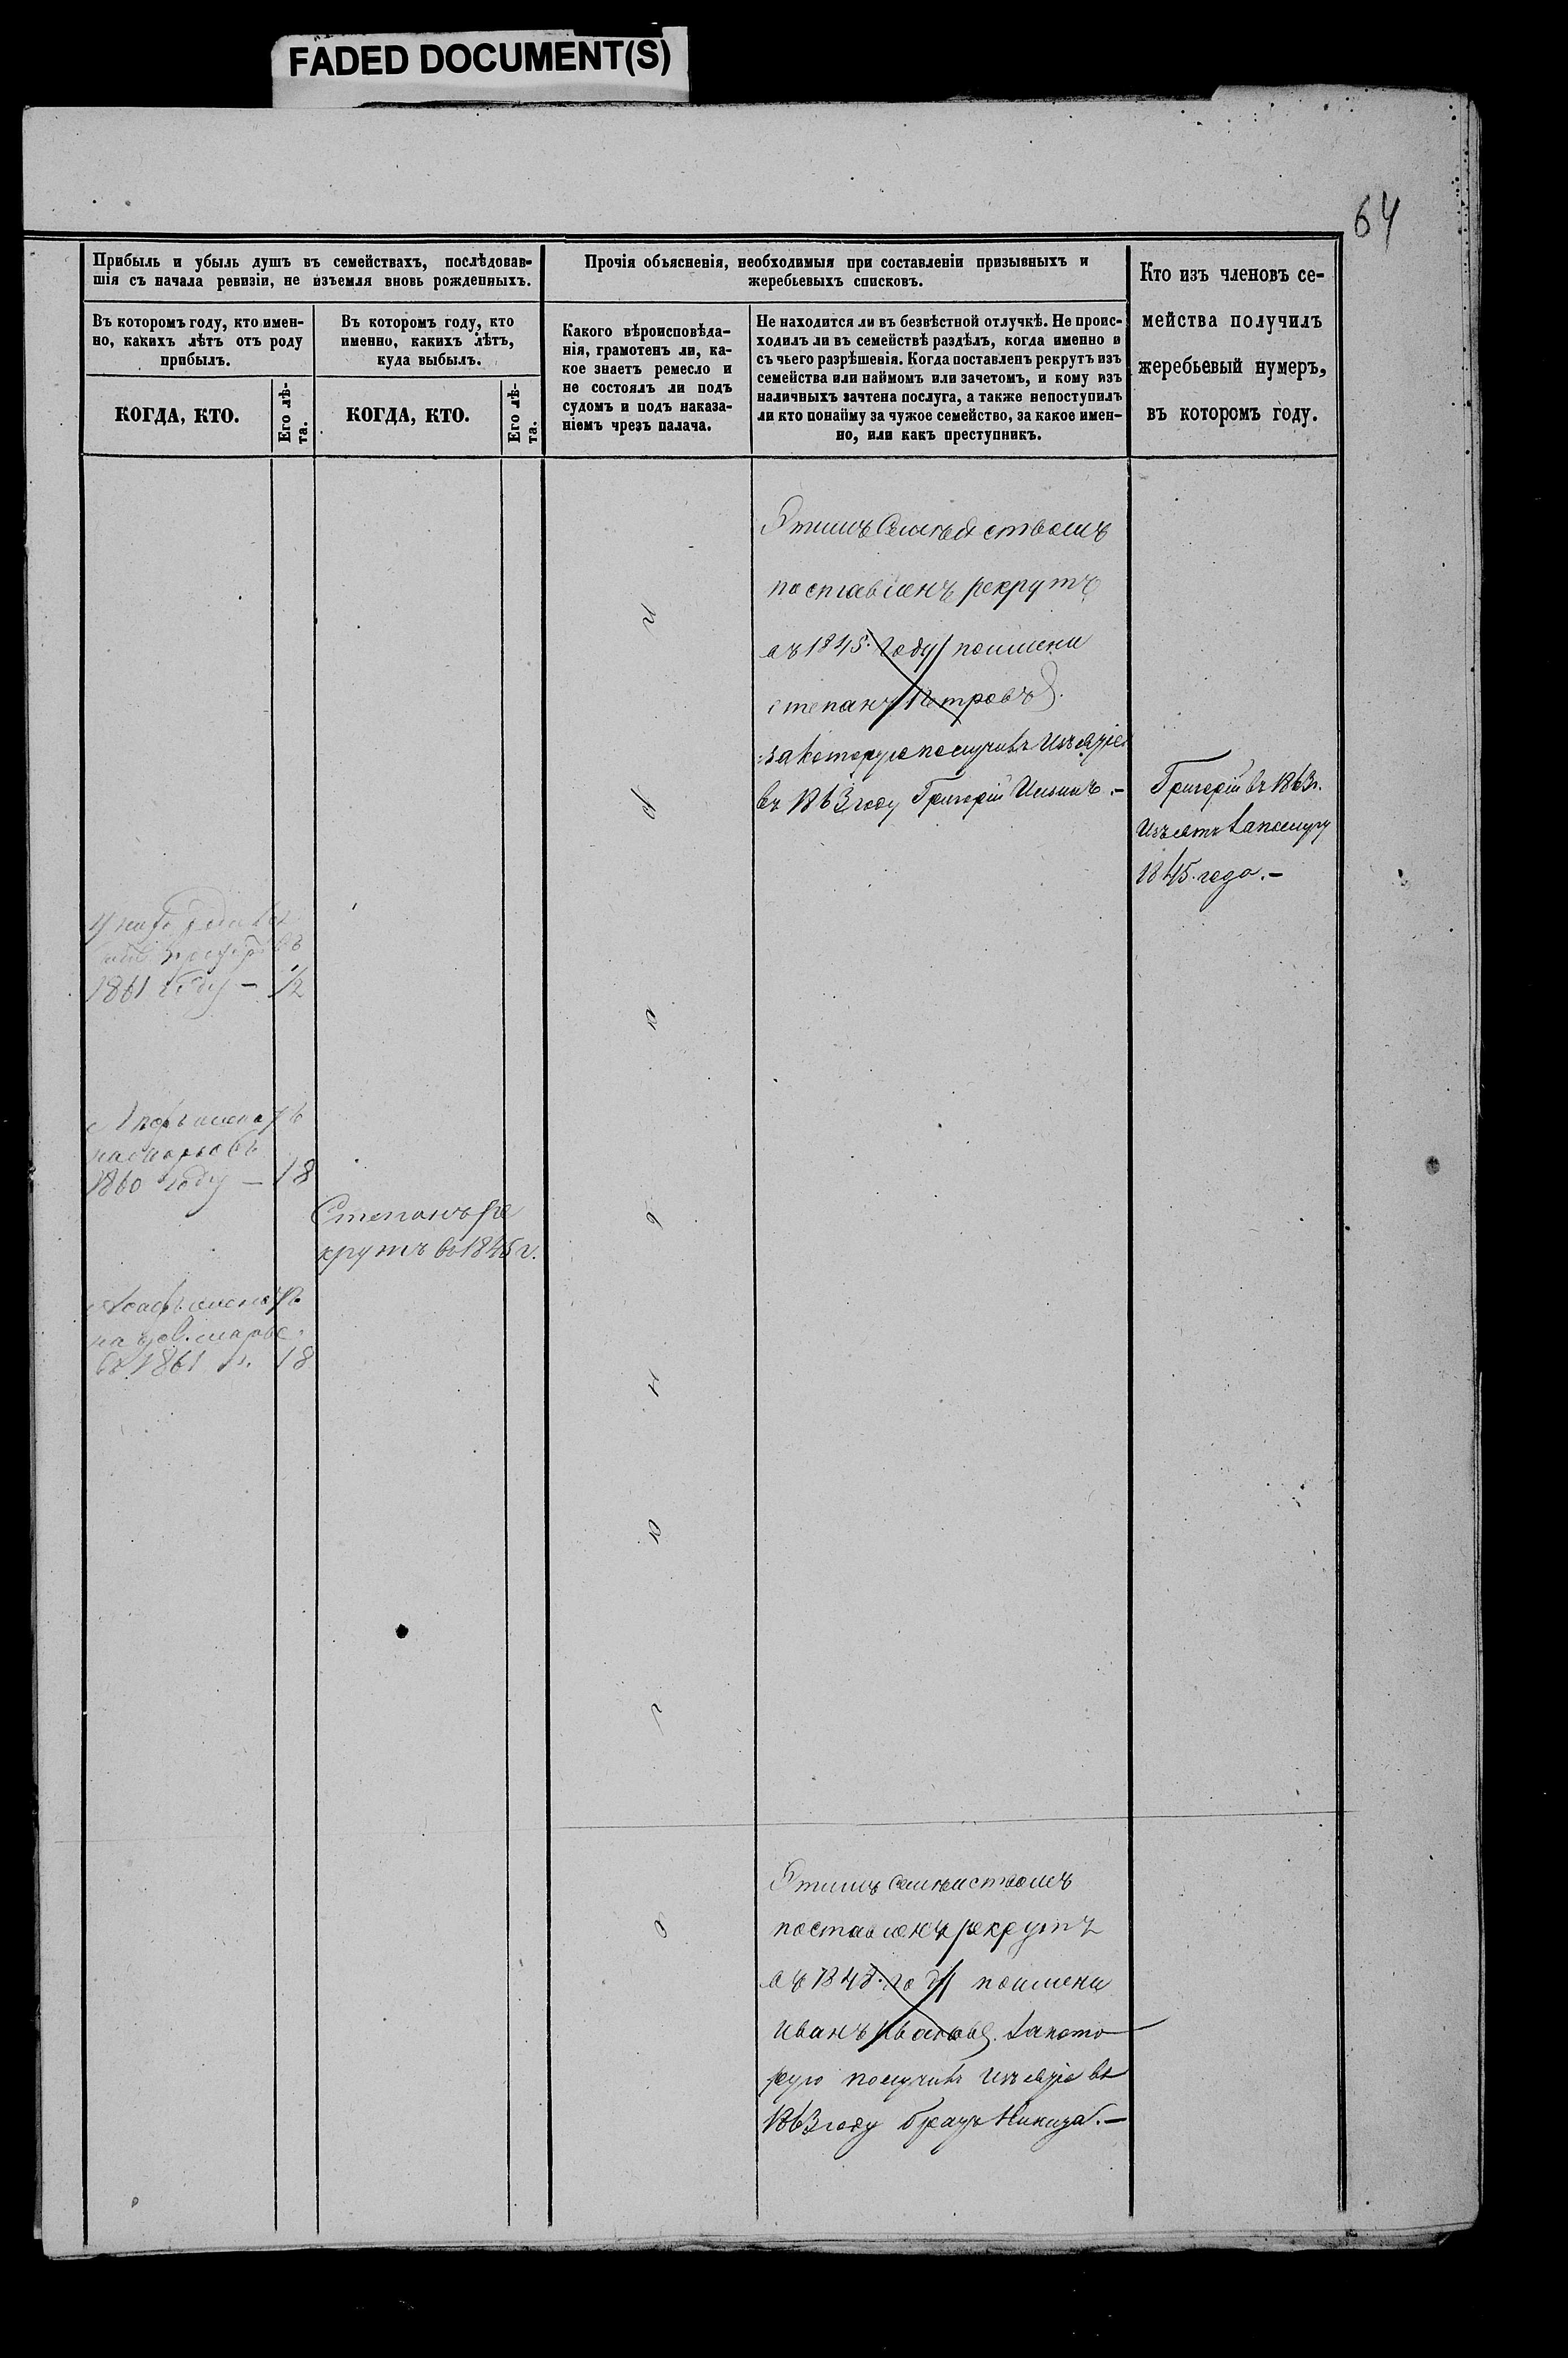 FADED DOCUMENT(S)
64
Прибыль и убыль душъ въ семействахъ, послѣдовав-
шія съ начала ревизіи, не изъемля вновь рожденныхъ.
Въ которомъ году, кто имен-
но, какихъ лѣтъ отъ роду
прибылъ.
КОГДА, КТО.
Его лѣ-
та.
Въ которомъ году, кто
именно, какихъ лѣтъ,
куда выбылъ.
КОГДА, КТО.
Его лѣ-
та.
Прочія объясненія, необходимыя при составленіи призывныхъ и
жеребьевыхъ списковъ.
Какого вѣроисповѣда-
нія, грамотенъ ли, ка-
кое знаетъ ремесло и
не состоялъ ли подъ
судомъ и подъ наказа-
ніемъ чрезъ палача.
Не находится ли въ безвѣстной отлучкѣ. Не проис-
ходилъ ли въ семействѣ раздѣлъ, когда именно и
съ чьего разрѣшенія. Когда поставленъ рекрутъ изъ
семейства или наймомъ или зачетомъ, и кому изъ
наличныхъ зачтена послуга, а также непоступилъ
ли кто понайму за чужое семейство, за какое имен-
но, или какъ преступникъ.
Кто изъ членовъ се-
мейства получилъ
жеребьевый нумеръ,
въ которомъ году.
Этимъ Семействомъ
поставленъ рекрутъ
въ 1845. году поимени
степанъ Петровъ.
закоторую получилъ Изъятіе
въ 1863 году Григорій Ильинъ.-
Григорій въ 1863г.
Изъятъ запослугу
1845. года.-
1861 году - 1/2
1860 году - 18
Степанъ ре
крутъ въ 1845 г.
въ 1861 г. 18
Этимъ семействомъ
поставленъ рекрутъ
въ 1848. году поимени
Иванъ Ивановъ. закото
рую получилъ Изъятіе въ
1863 году братъ Никита.-